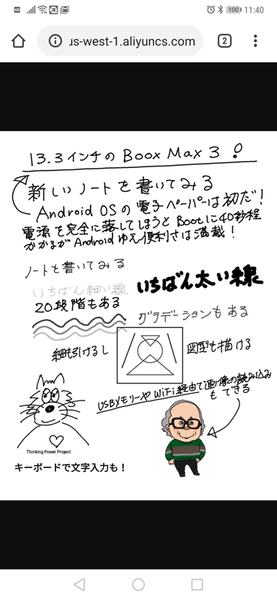 11:40
us-west-1.aliyuncs.com
2
13.3インチの Boox Max 3 !
新しいノートを書いてみる
Android OSの電子ペーパーは初だ!
電源を完全に落してしまうとBootに40秒程
かかるがAndroidゆえ便利さは満載!
ノートを書いてみる
いちばん細い線
いちばん太い線
20段階もある
グラデーションもある
線も引けるし
図型も描ける
USBメモリーやWiFi経由で画像の読み込み
もできる
Thinking Power Project
キーボードで文字入力も!